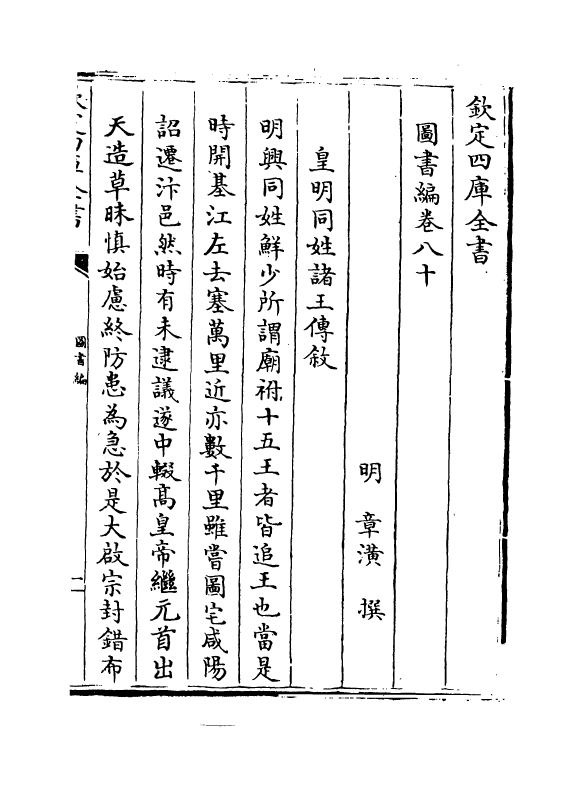 欽定四庫全書
圖書編卷八十
明 章潢 撰
皇明同姓諸王傳敘
明興同姓鮮少所謂廟祔十五王者皆追王也當是
時開基江左去塞萬里近亦數千里雖嘗圖宅咸陽
詔遷汴邑然時有未逮議遂中輟髙皇帝繼元首出
天造草昧慎始慮終防患為急於是大啟宗封錯布
圖書編
一